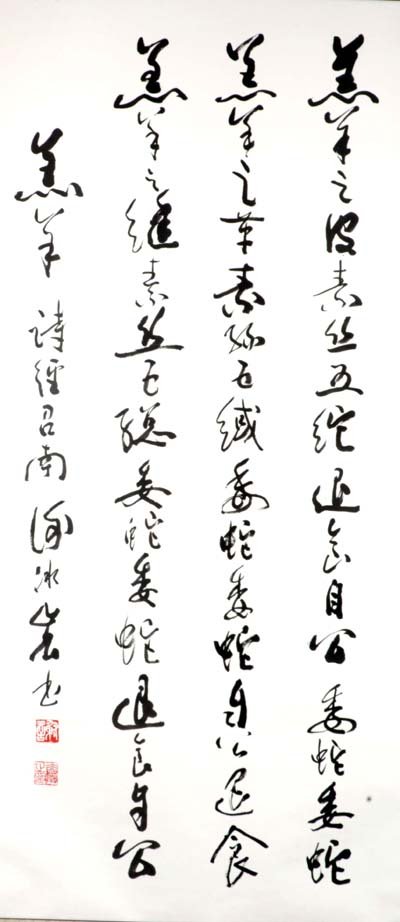 羔羊之皮素丝五紽退食自公委蛇委蛇
羔羊之革素絲五緎委蛇委蛇自公退食
羔羊之縫素丝五總委蛇委蛇退食自公
羔羊 詩經召南 书